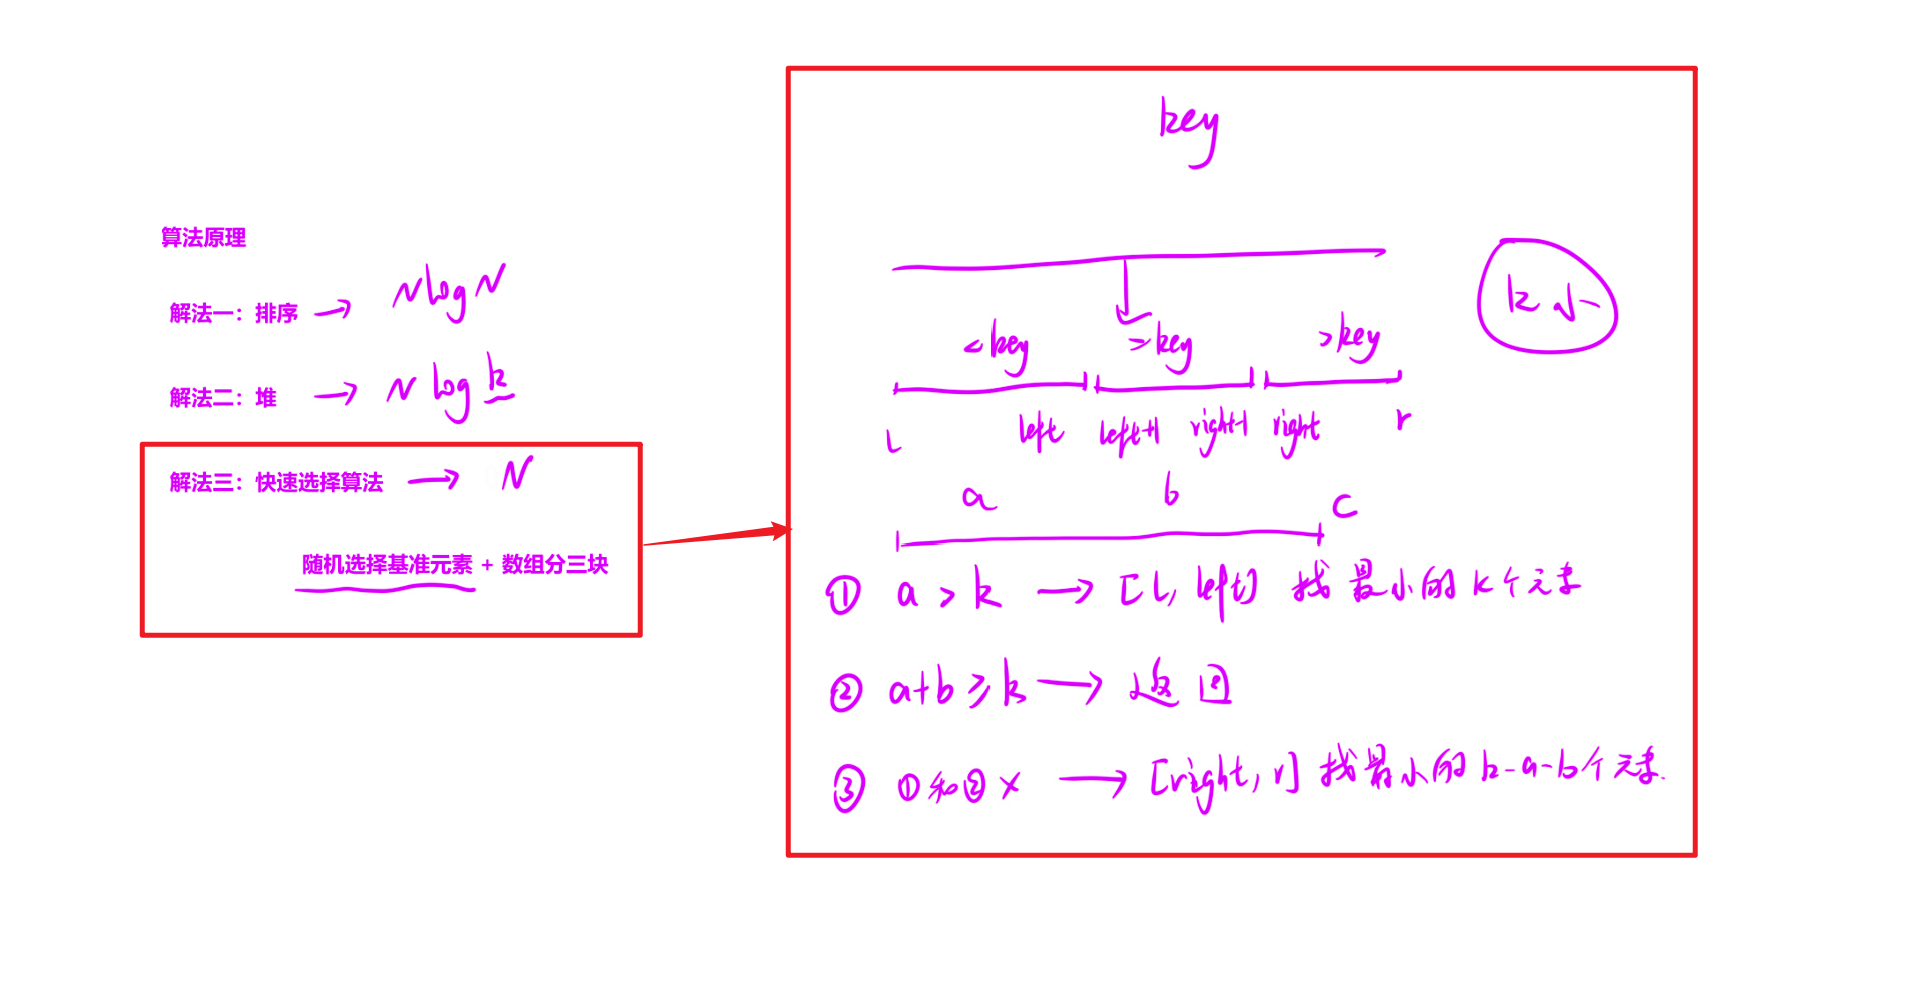 算法原理
解法一：排序 → NlogN
解法二：堆 → Nlogk
解法三：快速选择算法 → N
随机选择基准元素 + 数组分三块
key
k 小
<key =key >key
l left left+1 right-1 right r
a b c
① a > k → [l, left] 找最小的 k个元素
② a+b ≥ k → 返回
③ ①和② × → [right, r] 找最小的 k-a-b个元素.